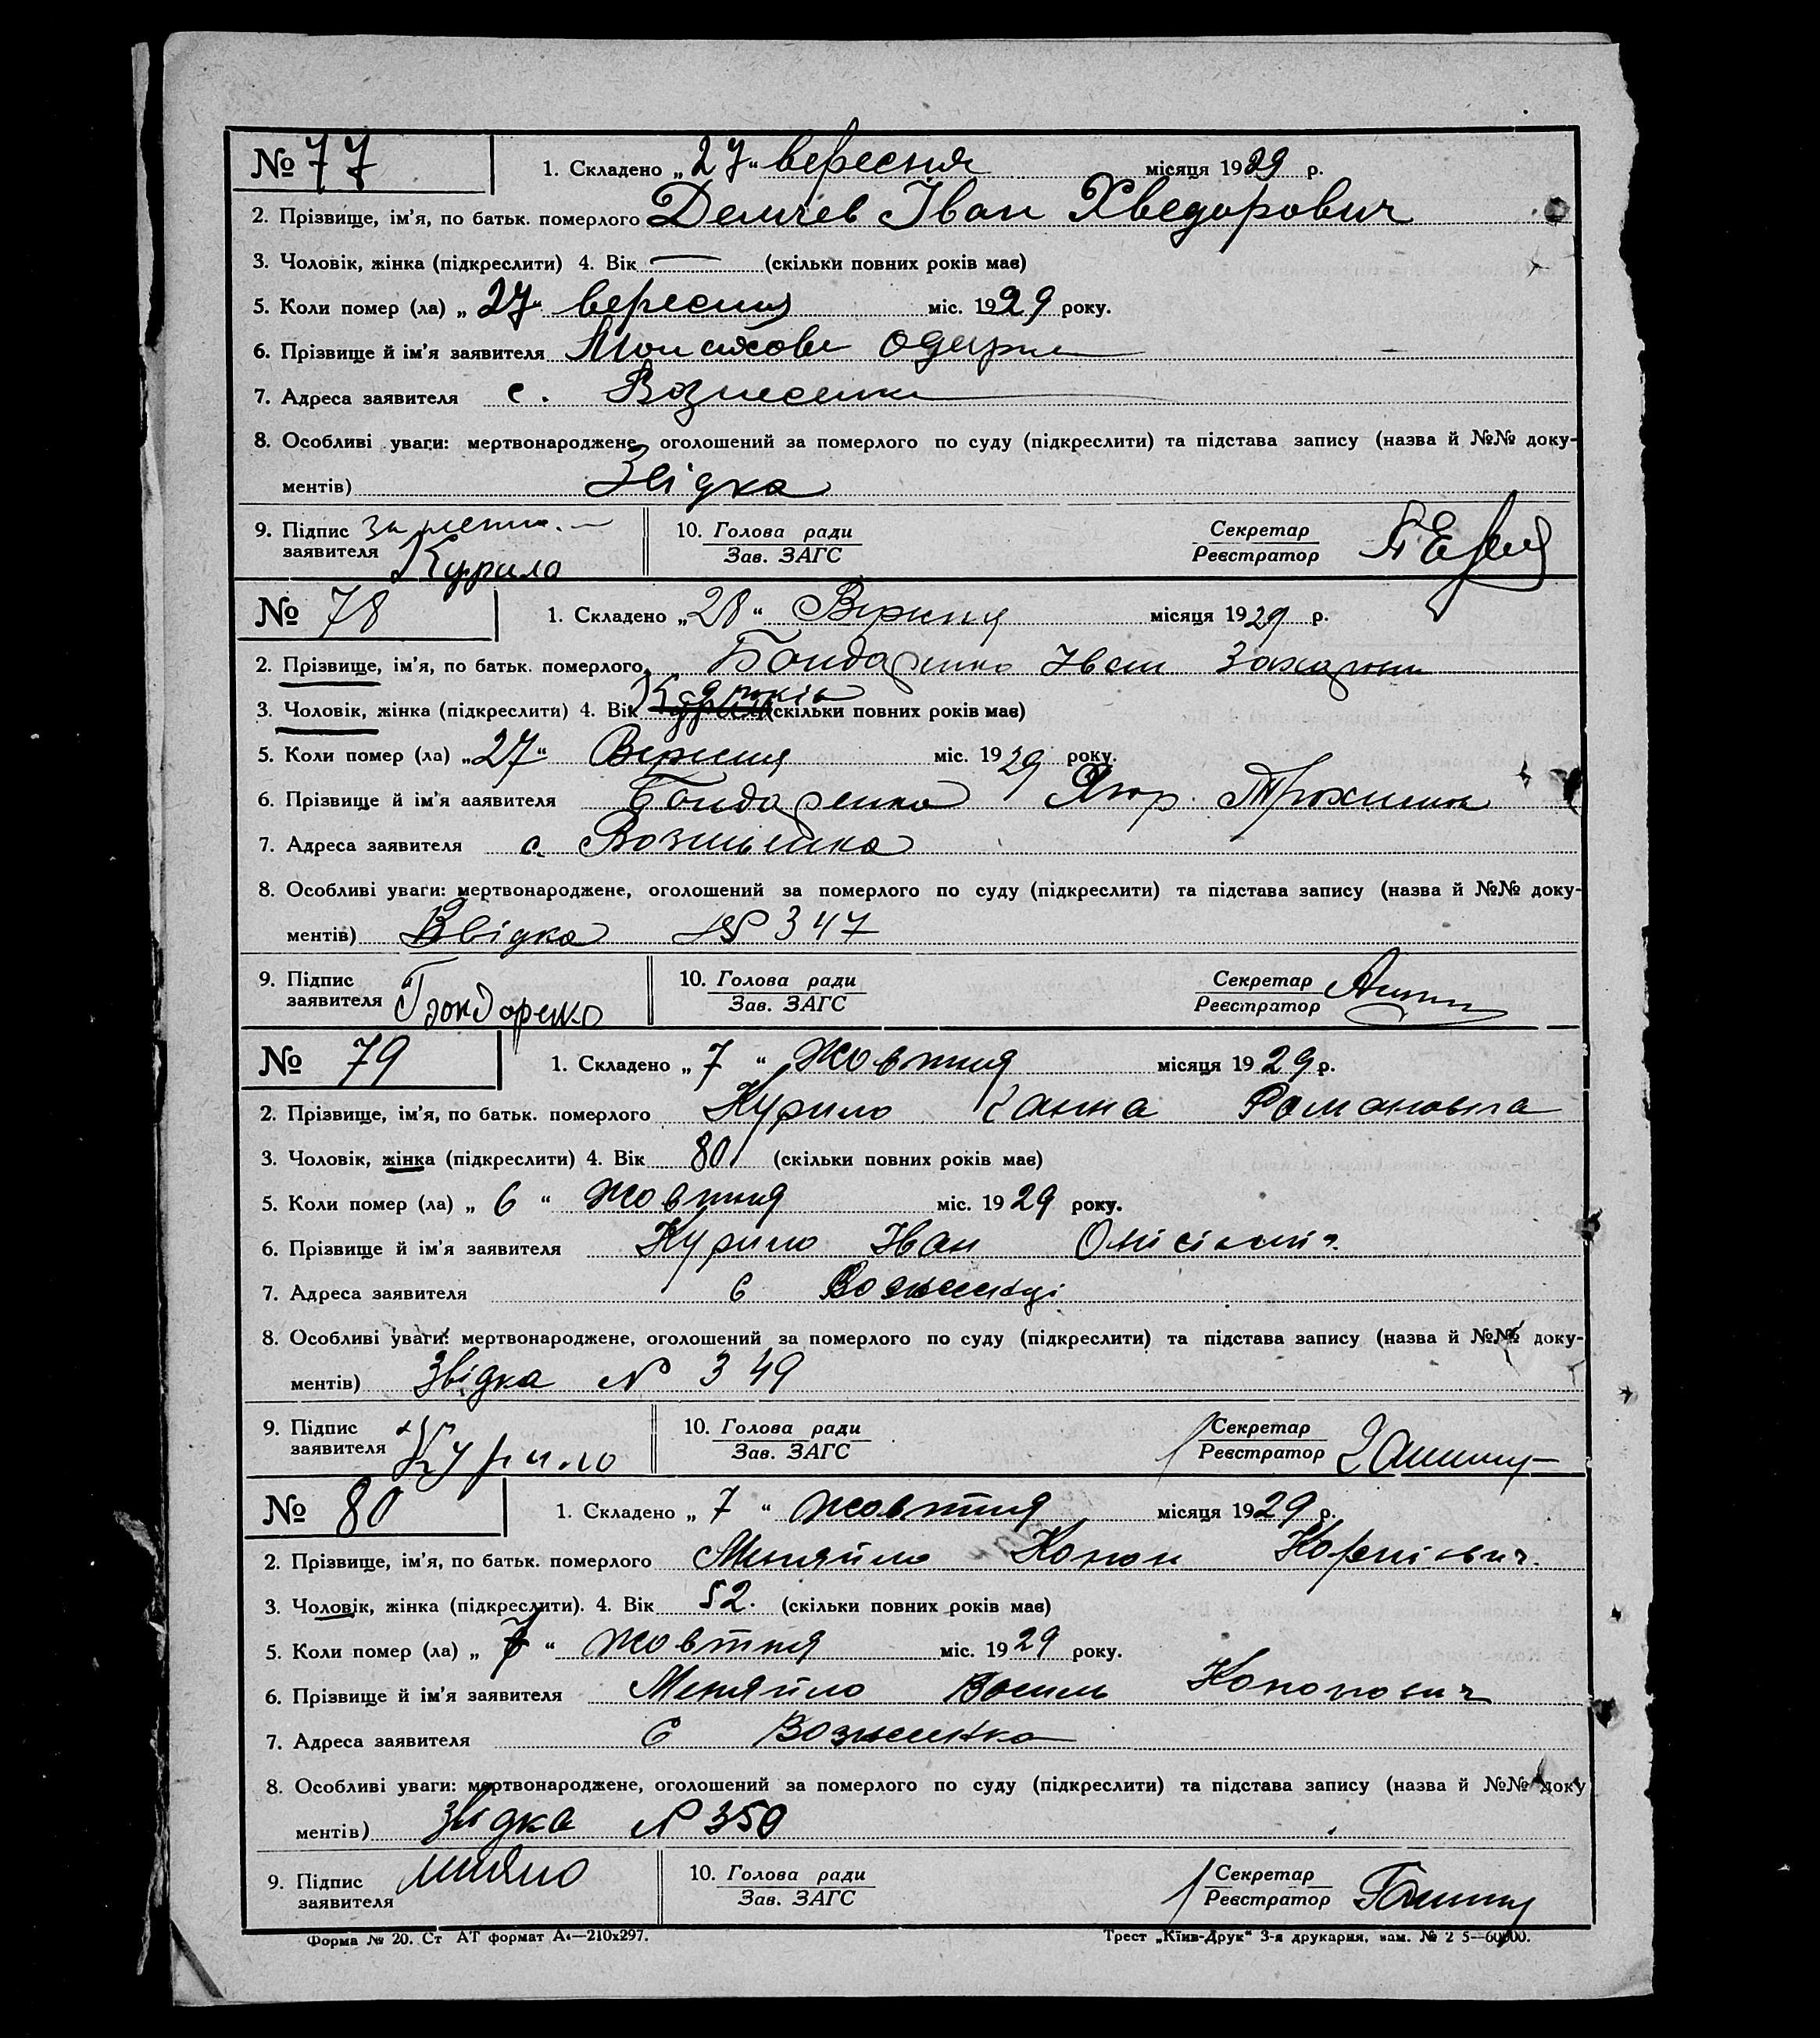 № 77 1. Складено „27“ вересня місяця 1929 р.
2. Прізвище, ім'я, по батьк. померлого Демчев Іван Хведорович
3. Чоловік, жінка (підкреслити) 4. Вік — (скільки повних років має)
5. Коли помер (ла) „27“ вересня міс. 1929 року.
6. Прізвище й ім'я заявителя
7. Адреса заявителя с. Вознесенка
8. Особливі уваги: мертвонароджене, оголошений за померлого по суду (підкреслити) та підстава запису (назва й №№ доку-
ментів) Звідка
9. Підпис заявителя Курило 10. Голова ради Зав. ЗАГС Секретар Реєстратор
№ 78 1. Складено „28“ Вересня місяця 1929 р.
2. Прізвище, ім'я, по батьк. померлого Бондаренко Іван
3. Чоловік, жінка (підкреслити) 4. Вік років (скільки повних років має)
5. Коли помер (ла) „27“ Вересня міс. 1929 року.
6. Прізвище й ім'я аявителя Бондаренко
7. Адреса заявителя с. Вознесенка
8. Особливі уваги: мертвонароджене, оголошений за померлого по суду (підкреслити) та підстава запису (назва й №№ доку-
ментів) Звідка № 347
9. Підпис заявителя Бондаренко 10. Голова ради Зав. ЗАГС Секретар Реєстратор
№ 79 1. Складено „7“ жовтня місяця 1929 р.
2. Прізвище, ім'я, по батьк. померлого Курило Ганна Романовна
3. Чоловік, жінка (підкреслити) 4. Вік 80 (скільки повних років має)
5. Коли помер (ла) „6“ жовтня міс. 1929 року.
6. Прізвище й ім'я заявителя Курило Іван
7. Адреса заявителя с
8. Особливі уваги: мертвонароджене, оголошений за померлого по суду (підкреслити) та підстава запису (назва й №№ доку-
ментів) Звідка № 349
9. Підпис заявителя Курило 10. Голова ради Зав. ЗАГС Секретар Реєстратор
№ 80 1. Складено „7“ жовтня місяця 1929 р.
2. Прізвище, ім'я, по батьк. померлого Меняйло Конон
3. Чоловік, жінка (підкреслити). 4. Вік 52. (скільки повних років має)
5. Коли помер (ла) „7“ жовтня міс. 1929 року.
6. Прізвище й ім'я заявителя Меняйло Василь Кононович
7. Адреса заявителя с Вознесенка
8. Особливі уваги: мертвонароджене, оголошений за померлого по суду (підкреслити) та підстава запису (назва й №№ доку
ментів) Звідка № 350
9. Підпис заявителя 10. Голова ради Зав. ЗАГС Секретар Реєстратор
Форма № 20. Ст АТ формат А4—210х297. Трест „Київ-Друк“ 3-я друкарня,